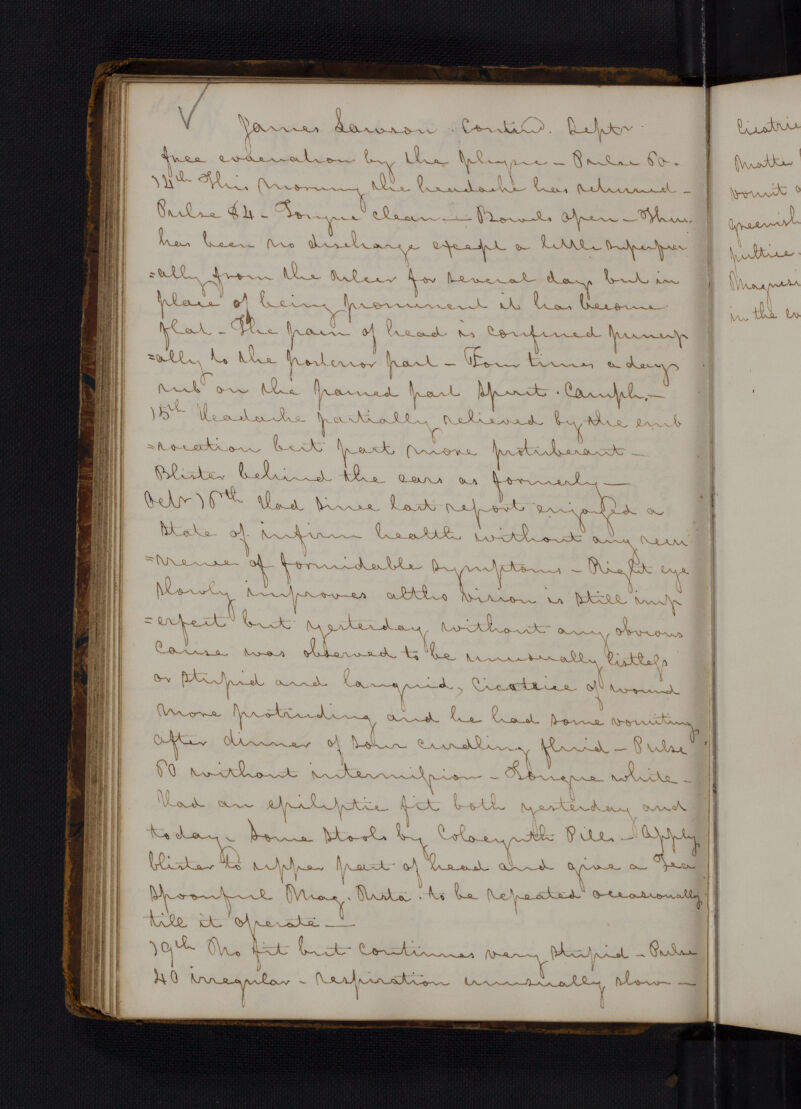 James Lawson. Contind. Septr.
free evacuation by the physic - Pulse 80.
14th This morning the headache has returned -
Pulse 84 - Tongue clean - Bowels open - There
has been no discharge except a little superfici
=ally from the ulcer for several days but in
place of being prominent it has become
flat - The pain of head is confined princip
=ally to the posterior part - Four times a day
rub on the pained part Spirit. Camph. -
15th Headache partially relieved by the emb
=rocation but part more protuberant -
Blister behind the ears as formerly -
Octr 18th Had since last report enjoyed a
state of infirm health without any recur
=rence of formidable symptoms - Right eye
slowly improves altho vision is still imp
=erfect but yesterday without any obvious
cause was observed to be unusually listless
or stupid and languid, Cicatrice of wound
more protruding and he had some vomiting
after dinner of sour curdling fluid - Pulse
80 without intermission - Tongue white -
Had an epileptic fit both yesterday and
today. Some stools by Colocynth Pills - Apply
blister to upper part of head and give a Tea
spoonful Mag. Usta. to be repeated occasionally
till it operate -
19th No fit but continues very stupid - Pulse
40 irregular - respiration unusually slow -
Cicatric
Matter
vomit
greenish
pultice
Magnesi
in the ev